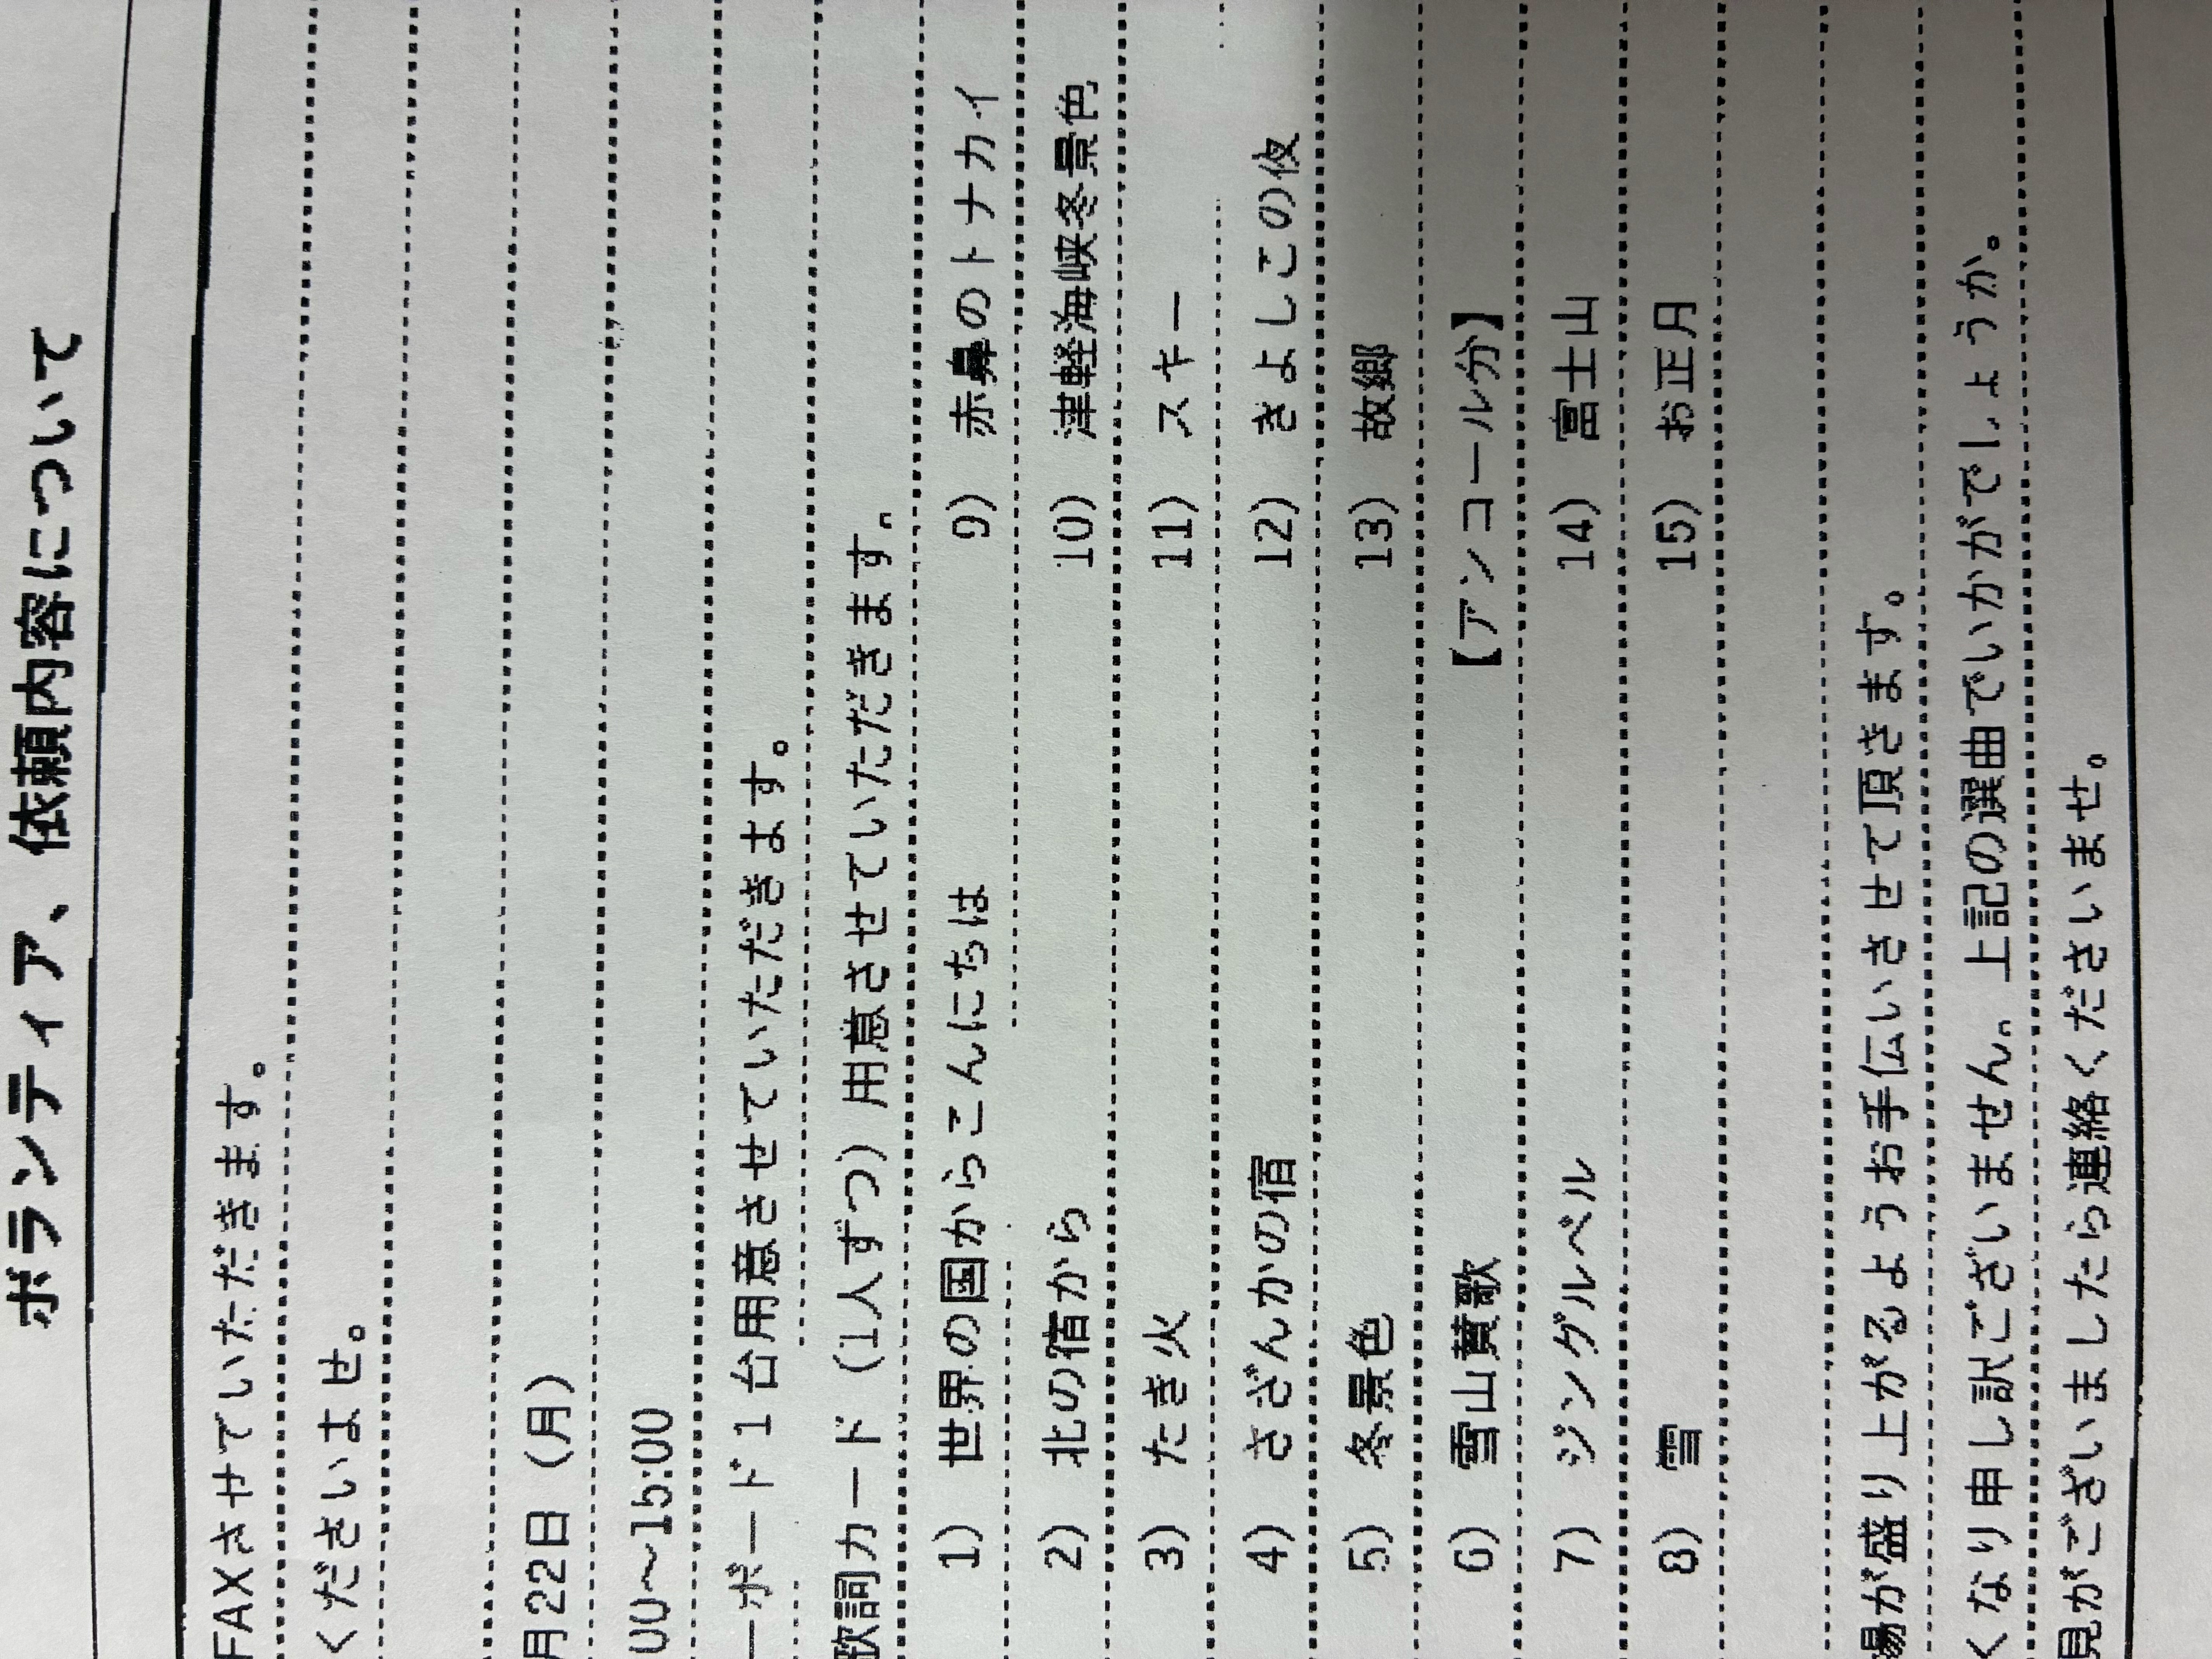 ボランティア、依頼内容について
FAXさせていただきます。
くださいませ。
月22日（月）
00～15:00
ーボード１台用意させていただきます。
歌詞カード（1人ずつ）用意させていただきます。
1） 世界の国からこんにちは 9） 赤鼻のトナカイ
2） 北の宿から 10） 津軽海峡冬景色
3） たき火 11） スキー
4） さざんかの宿 12） きよしこの夜
5） 冬景色 13） 故郷
6） 雪山賛歌 【アンコール分】
7） ジングルベル 14） 富士山
8） 雪 15） お正月
場が盛り上がるようお手伝いさせて頂きます。
くなり申し訳ございません。上記の選曲でいかがでしょうか。
見がございましたら連絡くださいませ。